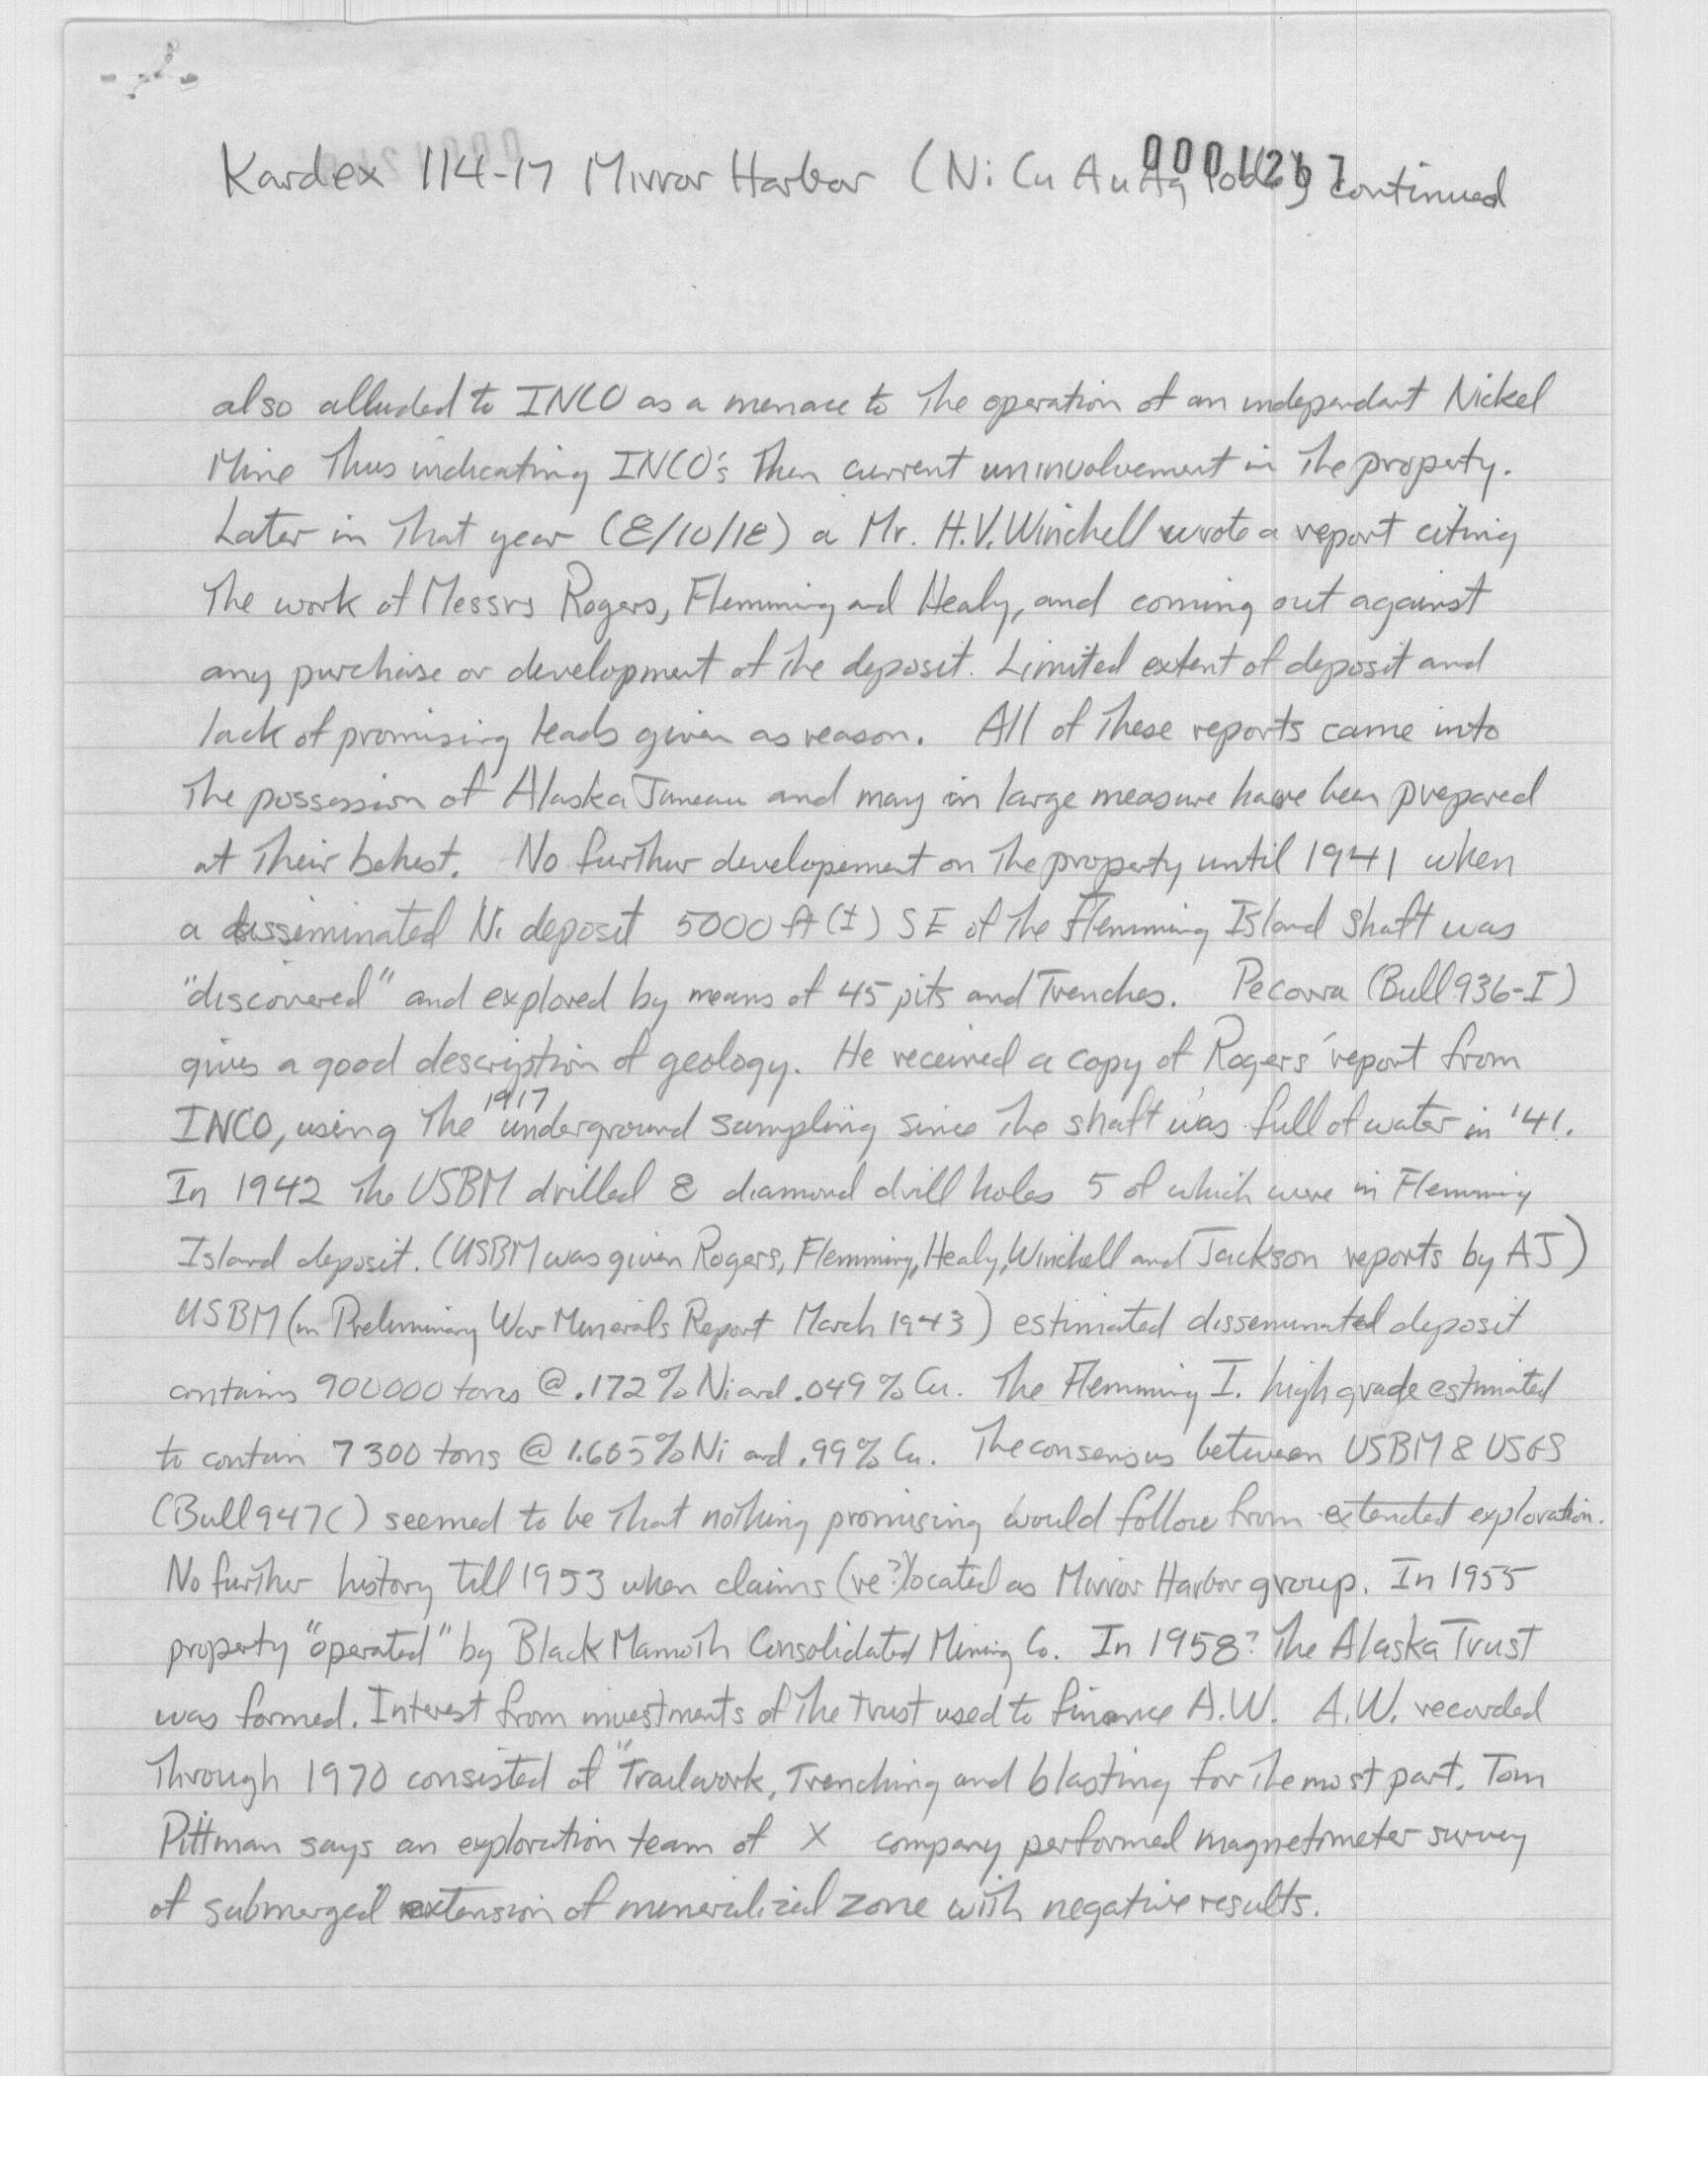 - 2 -
Kardex 114-17 Mirror Harbor (Ni Cu Au Ag continued
also alluded to INCO as a menace to the operation of an independant Nickel
Mine thus indicating INCO's then current uninvolvement in the property.
Later in that year (8/10/18) a Mr. H.V. Winchell wrote a report citing
the work of Messrs Rogers, Flemming and Healy, and coming out against
any purchase or development of the deposit. Limited extent of deposit and
lack of promising leads given as reason. All of these reports came into
the possession of Alaska Juneau and may in large measure have been prepared
at their behest. No further developement on the property until 1941 when
a disseminated Ni deposit 5000 ft (±) SE of the Flemming Island shaft was
"discovered" and explored by means of 45 pits and trenches. Pecora (Bull 936-I)
gives a good description of geology. He received a copy of Rogers' report from
INCO, using the 1917 underground sampling since the shaft was full of water in '41.
In 1942 the USBM drilled 8 diamond drill holes 5 of which were in Flemming
Island deposit. (USBM was given Rogers, Flemming, Healy, Winchell and Jackson reports by AJ)
USBM (in Preliminary War Minerals Report March 1943) estimated disseminated deposit
contains 900000 tons @ .172% Ni and .049% Cu. The Flemming I. high grade estimated
to contain 7300 tons @ 1.605% Ni and .99% Cu. The consensus between USBM & USGS
(Bull 947C) seemed to be that nothing promising would follow from extended exploration.
No further history till 1953 when claims (re?)located as Mirror Harbor group. In 1955
property "operated" by Black Mamoth Consolidated Mining Co. In 1958? the Alaska Trust
was formed. Interest from investments of the trust used to finance A.W. A.W. recorded
through 1970 consisted of "Trailwork, trenching and blasting for the most part. Tom
Pittman says an exploration team of X company performed magnetometer survey
of submerged extension of mineralized zone with negative results.